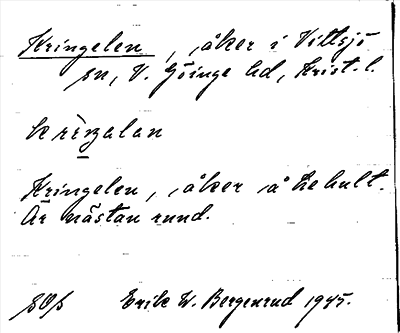 Kringelen, åker i Vittsjö
sn, V. Göinge hd, Krist. l.
Kringelen, åker å Lehult.
Är nästan rund.
Erik W. Bergenrud 1945.